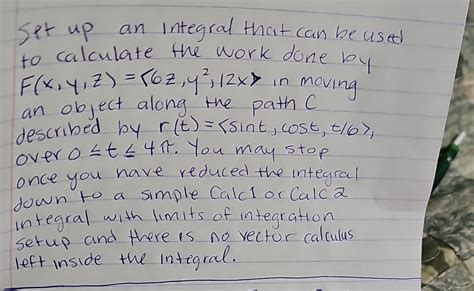 Set up an integral that can be used
to calculate the work done by
F(x,y,z) = ⟨6z, y², 12x⟩ in moving
an object along the path C
described by r(t) = ⟨sint, cost, t/6⟩,
over 0 ≤ t ≤ 4π. You may stop
once you have reduced the integral
down to a simple Calc1 or Calc 2
integral with limits of integration
setup and there is no vector calculus
left inside the integral.